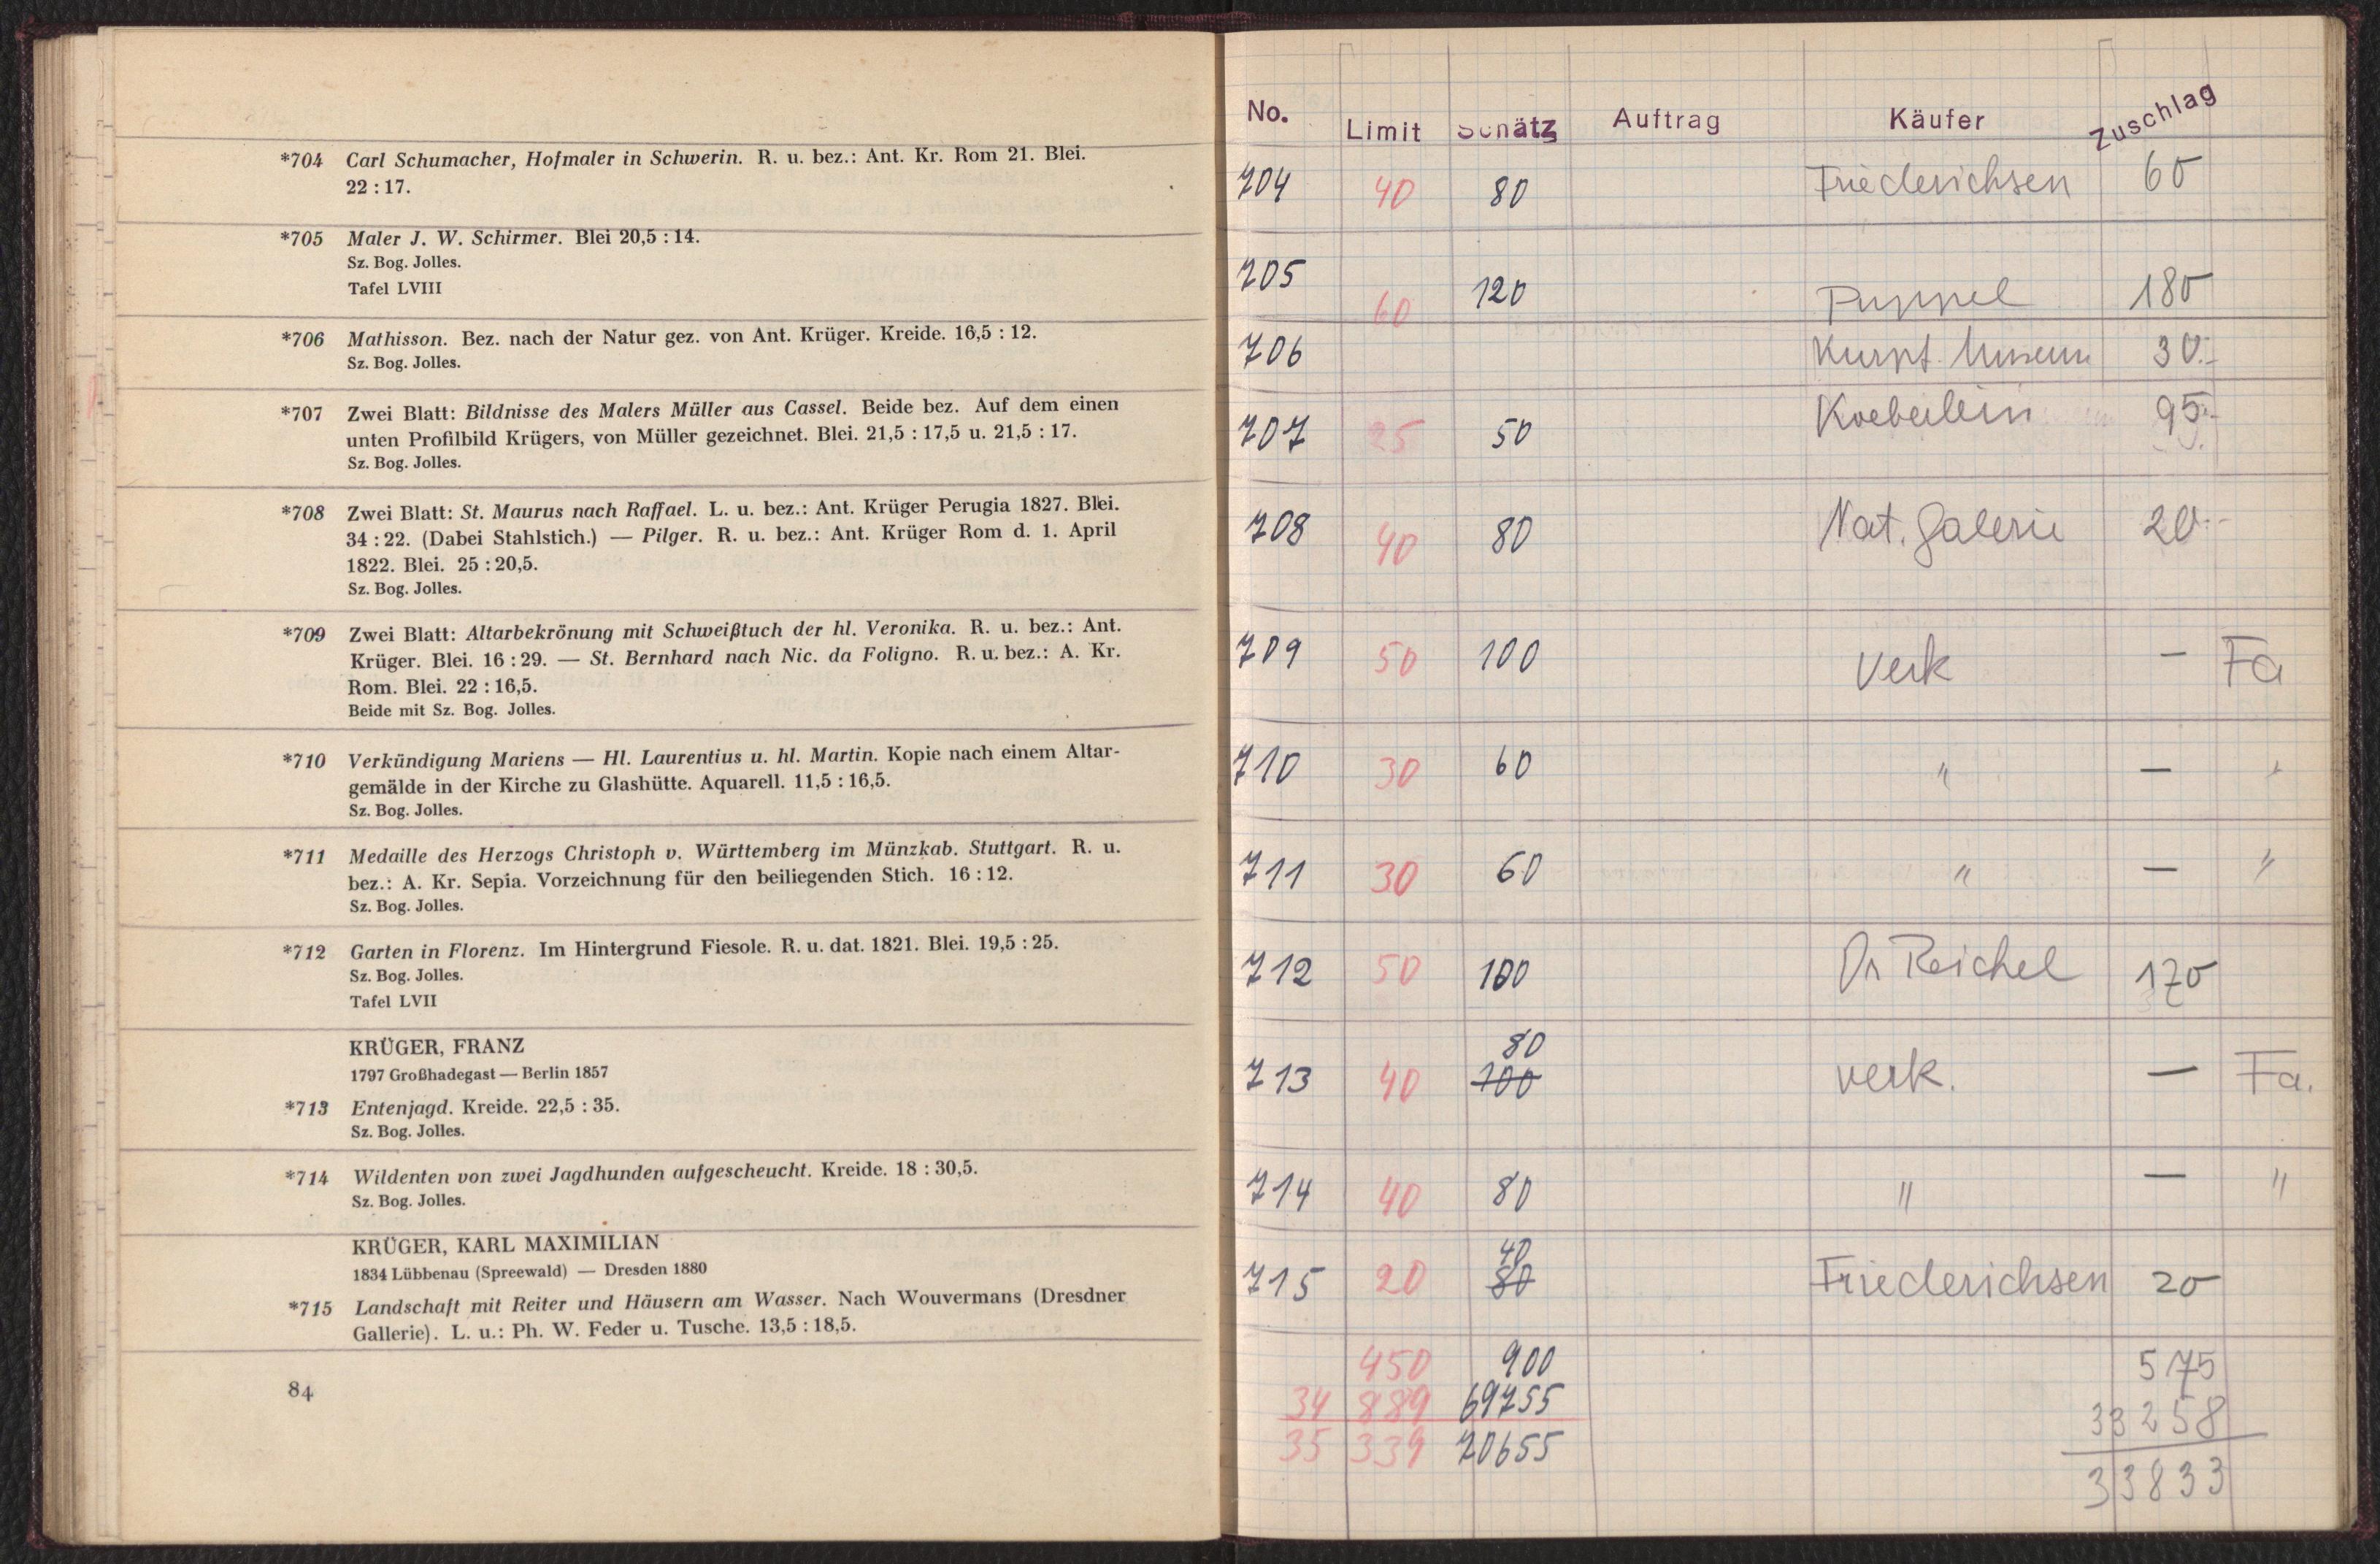 *704 Carl Schumacher, Hofmaler in Schwerin. R. u. bez.: Ant. Kr. Rom 21. Blei.
22 : 17.
*705 Maler J. W. Schirmer. Blei 20,5 : 14.
Sz. Bog. Jolles.
Tafel LVIII
*706 Mathisson. Bez. nach der Natur gez. von Ant. Krüger. Kreide. 16,5 : 12.
Sz. Bog. Jolles.
*707 Zwei Blatt: Bildnisse des Malers Müller aus Cassel. Beide bez. Auf dem einen
unten Profilbild Krügers, von Müller gezeichnet. Blei. 21,5 : 17,5 u. 21,5 : 17.
Sz. Bog. Jolles.
*708 Zwei Blatt: St. Maurus nach Raffael. L. u. bez.: Ant. Krüger Perugia 1827. Blei.
34 : 22. (Dabei Stahlstich.) — Pilger. R. u. bez.: Ant. Krüger Rom d. 1. April
1822. Blei. 25 : 20,5.
Sz. Bog. Jolles.
*709 Zwei Blatt: Altarbekrönung mit Schweißtuch der hl. Veronika. R. u. bez.: Ant.
Krüger. Blei. 16 : 29. — St. Bernhard nach Nic. da Foligno. R. u. bez.: A. Kr.
Rom. Blei. 22 : 16,5.
Beide mit Sz. Bog. Jolles.
*710 Verkündigung Mariens — Hl. Laurentius u. hl. Martin. Kopie nach einem Altar-
gemälde in der Kirche zu Glashütte. Aquarell. 11,5 : 16,5.
Sz. Bog. Jolles.
*711 Medaille des Herzogs Christoph v. Württemberg im Münzkab. Stuttgart. R. u.
bez.: A. Kr. Sepia. Vorzeichnung für den beiliegenden Stich. 16 : 12.
Sz. Bog. Jolles.
*712 Garten in Florenz. Im Hintergrund Fiesole. R. u. dat. 1821. Blei. 19,5 : 25.
Sz. Bog. Jolles.
Tafel LVII
KRÜGER, FRANZ
1797 Großhadegast — Berlin 1857
*713 Entenjagd. Kreide. 22,5 : 35.
Sz. Bog. Jolles.
*714 Wildenten von zwei Jagdhunden aufgescheucht. Kreide. 18 : 30,5.
Sz. Bog. Jolles.
KRÜGER, KARL MAXIMILIAN
1834 Lübbenau (Spreewald) — Dresden 1880
*715 Landschaft mit Reiter und Häusern am Wasser. Nach Wouvermans (Dresdner
Gallerie). L. u.: Ph. W. Feder u. Tusche. 13,5 : 18,5.
84
No. Limit Schätz Auftrag Käufer Zuschlag
704 40 80 Friederichsen 60
705 60 120 Puppel 180
706 Kurpf. Museum 30.-
707 25 50 Koeberlein 95.-
708 40 80 Nat. Galerie 20.-
709 50 100 verk — Fa
710 30 60 " — "
711 30 60 " — "
712 50 100 Dr Reichel 170
80
713 40 100 verk. — Fa.
714 40 80 " — "
40
715 20 80 Friederichsen 20
450 900 575
34 889 69755 33258
35 339 70655 33833